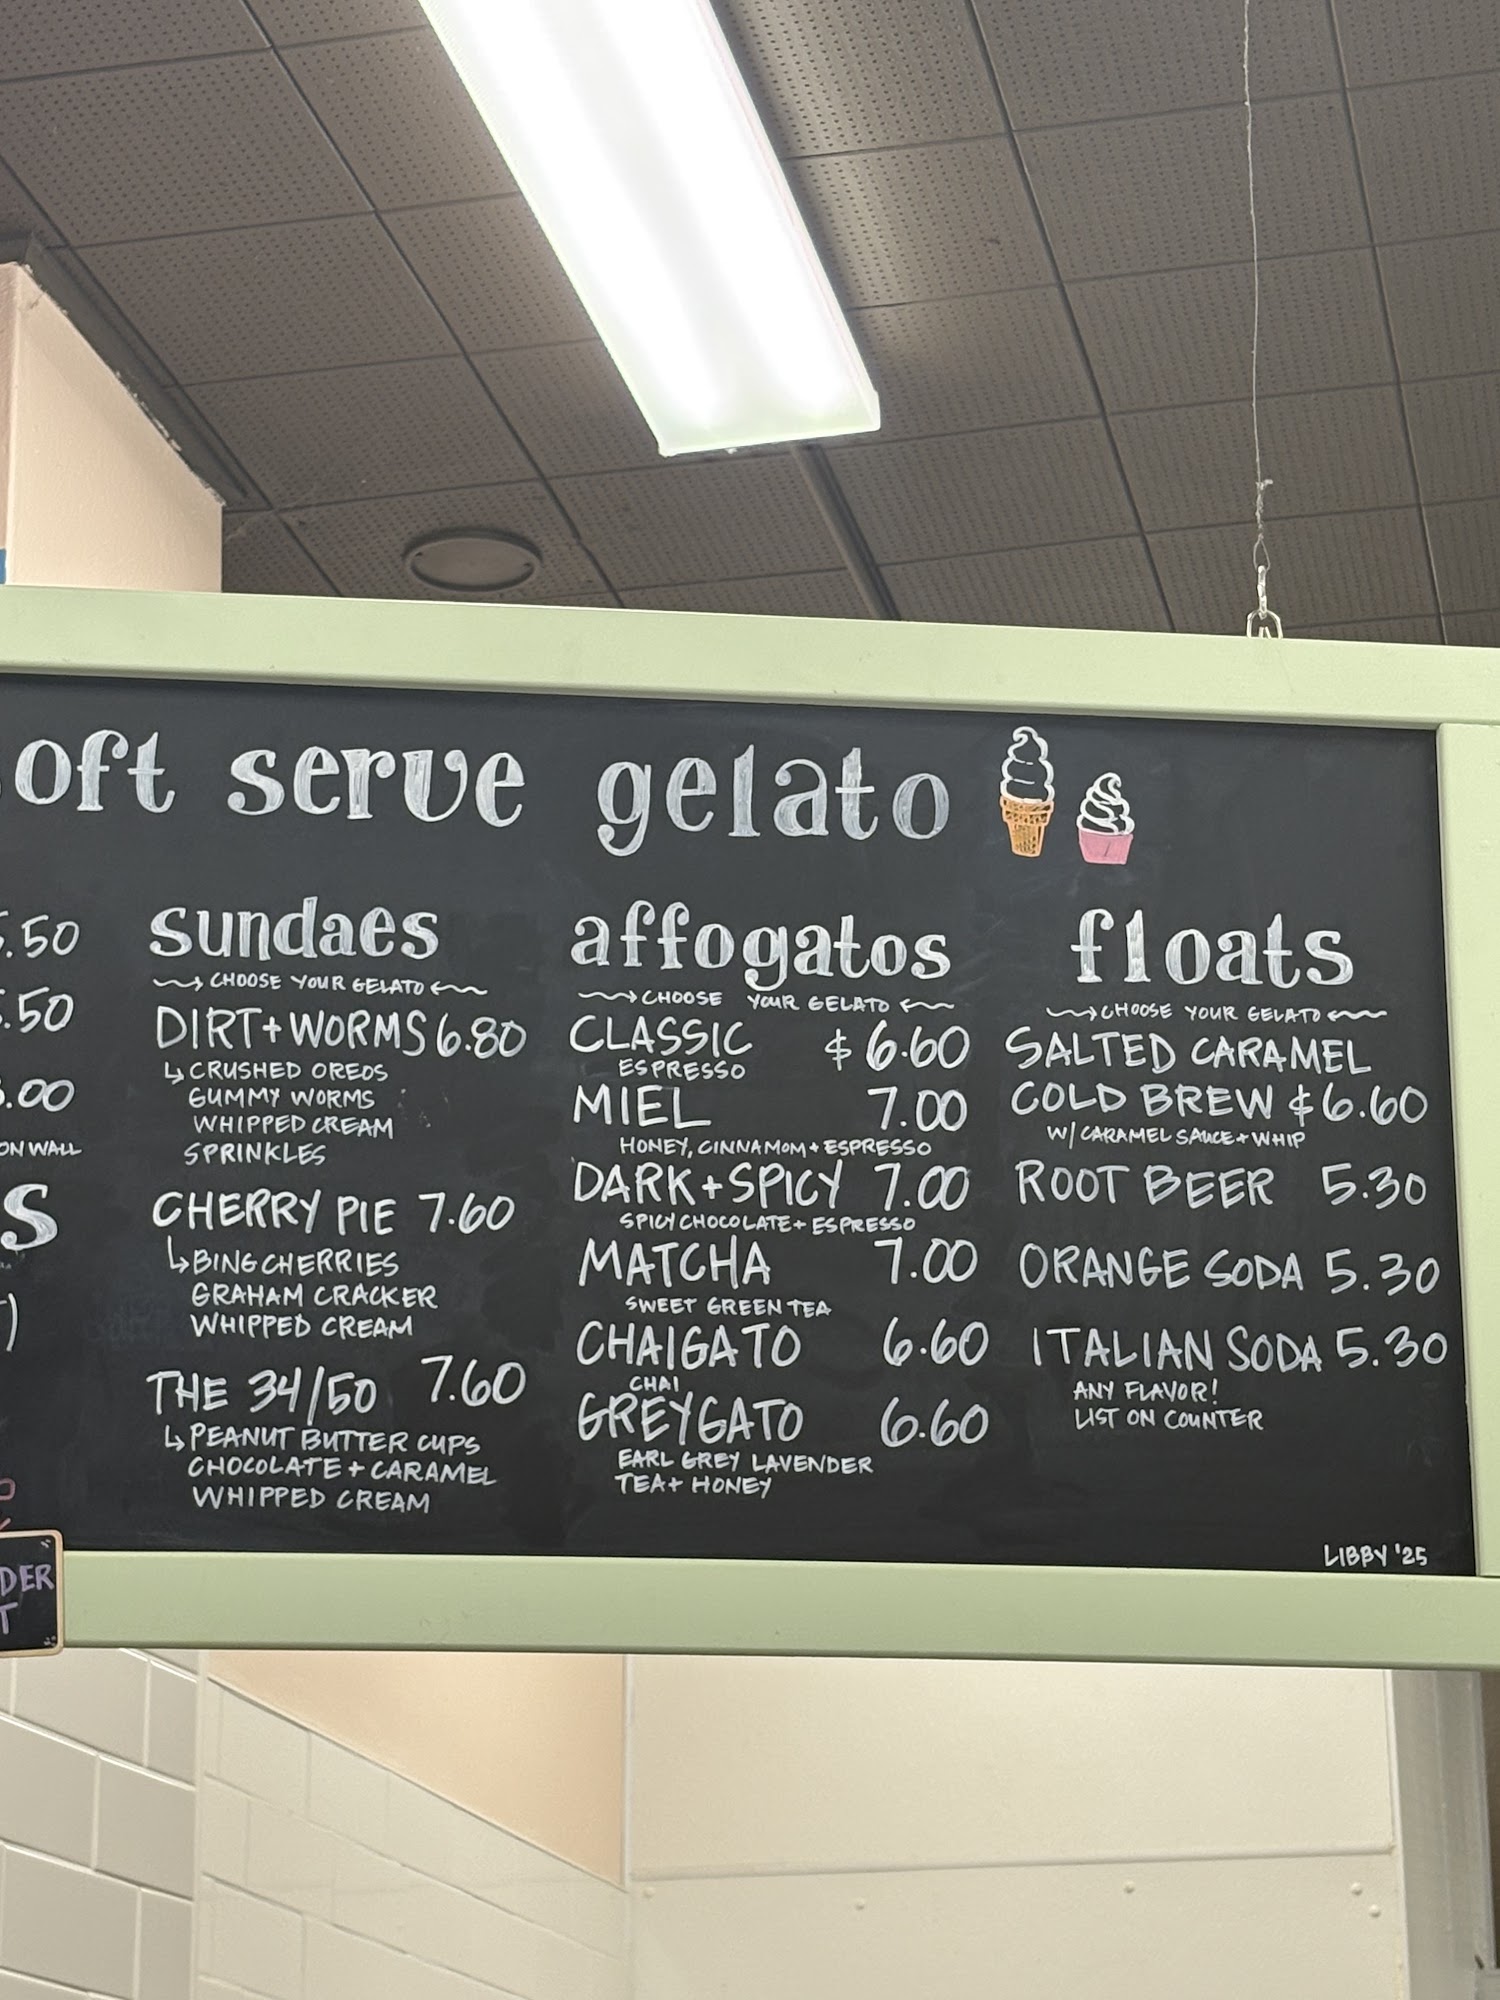 oft serve gelato
.50
.50
.00
ON WALL
S
sundaes
CHOOSE YOUR GELATO
DIRT + WORMS 6.80
CRUSHED OREOS
GUMMY WORMS
WHIPPED CREAM
SPRINKLES
CHERRY PIE 7.60
BING CHERRIES
GRAHAM CRACKER
WHIPPED CREAM
THE 34/50 7.60
PEANUT BUTTER CUPS
CHOCOLATE + CARAMEL
WHIPPED CREAM
affogatos
CHOOSE YOUR GELATO
CLASSIC $6.60
ESPRESSO
MIEL 7.00
HONEY, CINNAMOM + ESPRESSO
DARK + SPICY 7.00
SPICY CHOCOLATE + ESPRESSO
MATCHA 7.00
SWEET GREEN TEA
CHAIGATO 6.60
CHAI
GREYGATO 6.60
EARL GREY LAVENDER
TEA + HONEY
floats
CHOOSE YOUR GELATO
SALTED CARAMEL
COLD BREW $6.60
W/ CARAMEL SAUCE + WHIP
ROOT BEER 5.30
ORANGE SODA 5.30
ITALIAN SODA 5.30
ANY FLAVOR!
LIST ON COUNTER
LIBBY '25
DER
T